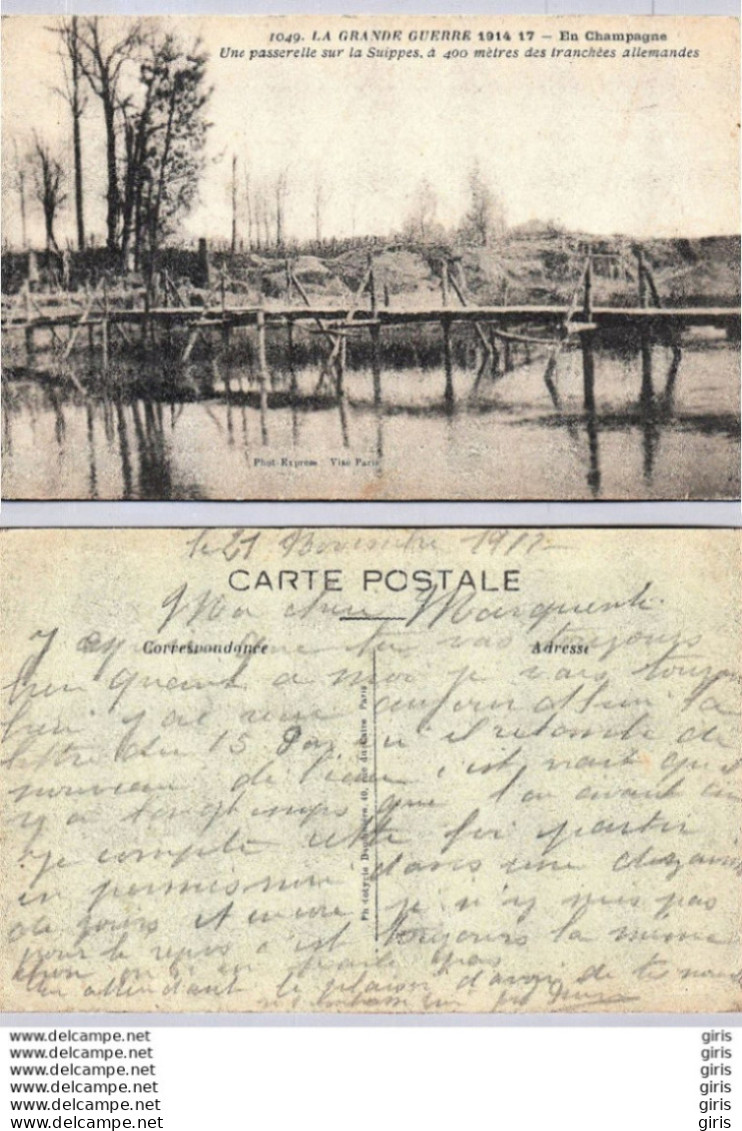 1049. LA GRANDE GUERRE 1914 17 — En Champagne
Une passerelle sur la Suippes, à 400 mètres des tranchées allemandes
Phot-Express Visé Paris
le 21 Novembre 1917
CARTE POSTALE
Ma chere Marguerite
Correspondance
Adresse
que tu vas toujours
bien quand a moi je vais toujours
bien j'ai recu aujourd'hui ta
lettre du 15 qu'il retombe de
nouveau de l'eau c'est vrait qu'il
y a longtemps que l'on avait
je compte cette foi partir
en permission dans une dizaine
de jours et encore je n'y suis pas
pour le repos c'est toujours la même
chose on n'en parle pas
en attendant le plaisir d'avoir de tes
Phototypie 40, Paris
www.delcampe.net
giris
www.delcampe.net
giris
www.delcampe.net
giris
www.delcampe.net
giris
www.delcampe.net
giris
www.delcampe.net
giris